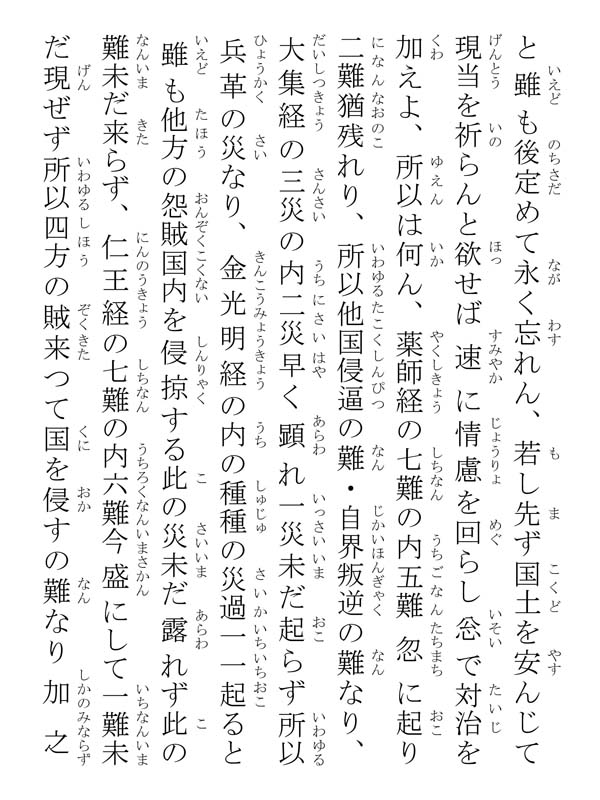 と雖も後定めて永く忘れん、若し先ず国土を安んじて
現当を祈らんと欲せば速に情慮を回らし忩で対治を
加えよ、所以は何ん、薬師経の七難の内五難忽に起り
二難猶残れり、所以他国侵逼の難・自界叛逆の難なり、
大集経の三災の内二災早く顕れ一災未だ起らず所以
兵革の災なり、金光明経の内の種種の災過一一起ると
雖も他方の怨賊国内を侵掠する此の災未だ露れず此の
難未だ来らず、仁王経の七難の内六難今盛にして一難未
だ現ぜず所以四方の賊来つて国を侵すの難なり加之